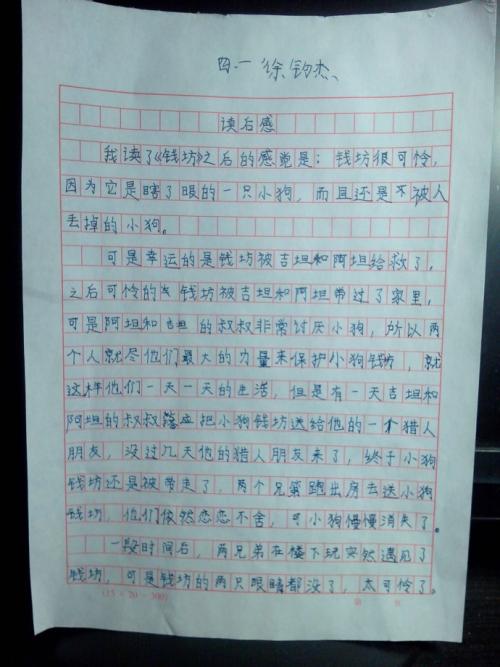 四.一 徐钧杰
读后感
我读了《钱坊》之后的感觉是：钱坊很可怜，
因为它是瞎了眼的一只小狗，而且还是不被人
丢掉的小狗。
可是幸运的是钱坊被吉坦和阿坦给救了，
之后可怜的钱坊被吉坦和阿坦带过了家里，
可是阿坦和吉坦的叔叔非常讨厌小狗，所以两
个人就尽他们最大的力量来保护小狗钱坊，就
这样他们一天一天的生活，但是有一天吉坦和
阿坦的叔叔答应把小狗钱坊送给他的一个猎人
朋友，没过几天他的猎人朋友来了，终于小狗
钱坊还是被带走了，两个兄弟跑出房去送小狗
钱坊，他们依然恋恋不舍，可小狗慢慢消失了。
一段时间后，两兄弟在楼下玩突然遇见了
钱坊，可是钱坊的两只眼睛都没了，太可怜了。
(15×20=300)
第 页